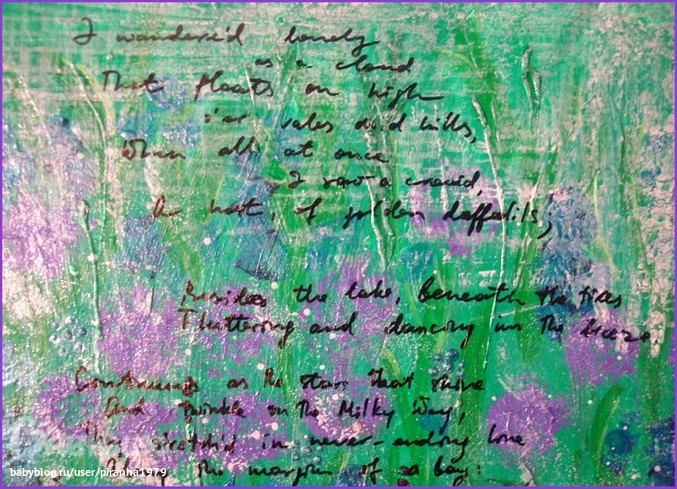 I wander'd lonely
as a cloud
That floats on high
o'er vales and hills,
When all at once
I saw a crowd,
A host, of golden daffodils;
Besides the lake, beneath the trees
Fluttering and dancing in the breeze.
Continuous as the stars that shine
And twinkle on the Milky Way,
They stretch'd in never-ending line
Along the margin of a bay:
babyblog.ru/user/piranha1979